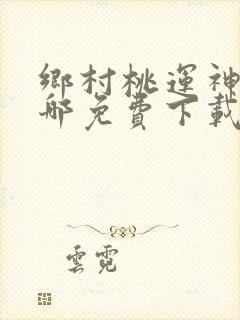 鄉村桃運神
那免費下載
雲霓